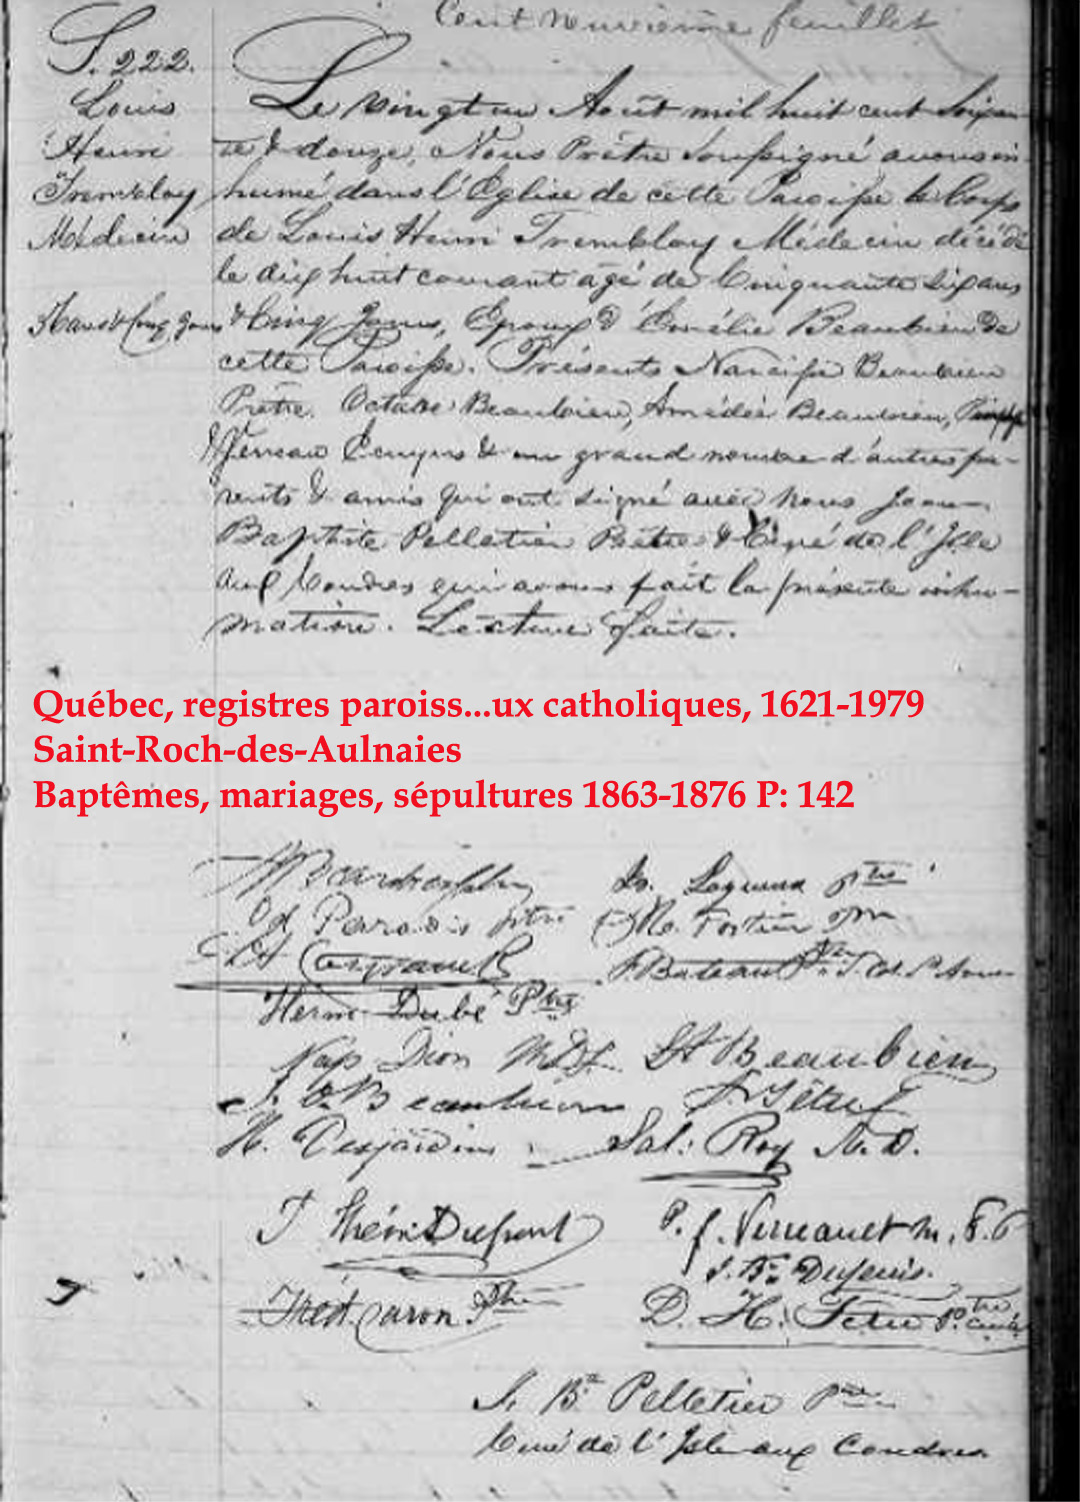 Cent neuvième feuillet
S. 222.
Louis
Henri
Tremblay
Médecin
Le vingt un Août mil huit cent soixan-
te & douze, Nous Prêtre soussigné avons in-
humé dans l'Église de cette Paroisse le Corps
de Louis Henri Tremblay Médecin décédé
le dix huit courant âgé de Cinquante six ans
& Cinq jours, Epoux d'Emélie Beaubien de
cette Paroisse. Présents Narcisse Beaubien
Prêtre, Octave Beaubien, Amédée Beaubien,
& un grand nombre d'autres pa-
rents & amis qui ont signé avec nous Jean
Baptiste Pelletier Prêtre & Curé de l'Isle
aux Coudres qui avons fait la présente inhu-
mation. Lecture faite.
Québec, registres paroiss...ux catholiques, 1621-1979
Saint-Roch-des-Aulnaies
Baptêmes, mariages, sépultures 1863-1876 P: 142
Lagueux Ptre
Od Paradis ptre
Fortier
Dubé Ptre
Nap Dion
Beaubien
Beaubien
H. Desjardins
Sal: Roy N. P.
Dupont
P. f. Verreault
J. Bte Dupuis.
Fréd Caron Ptre
D. H. Têtu Ptre curé
J. Bte Pelletier Ptre
Curé de l'Isle aux Coudres